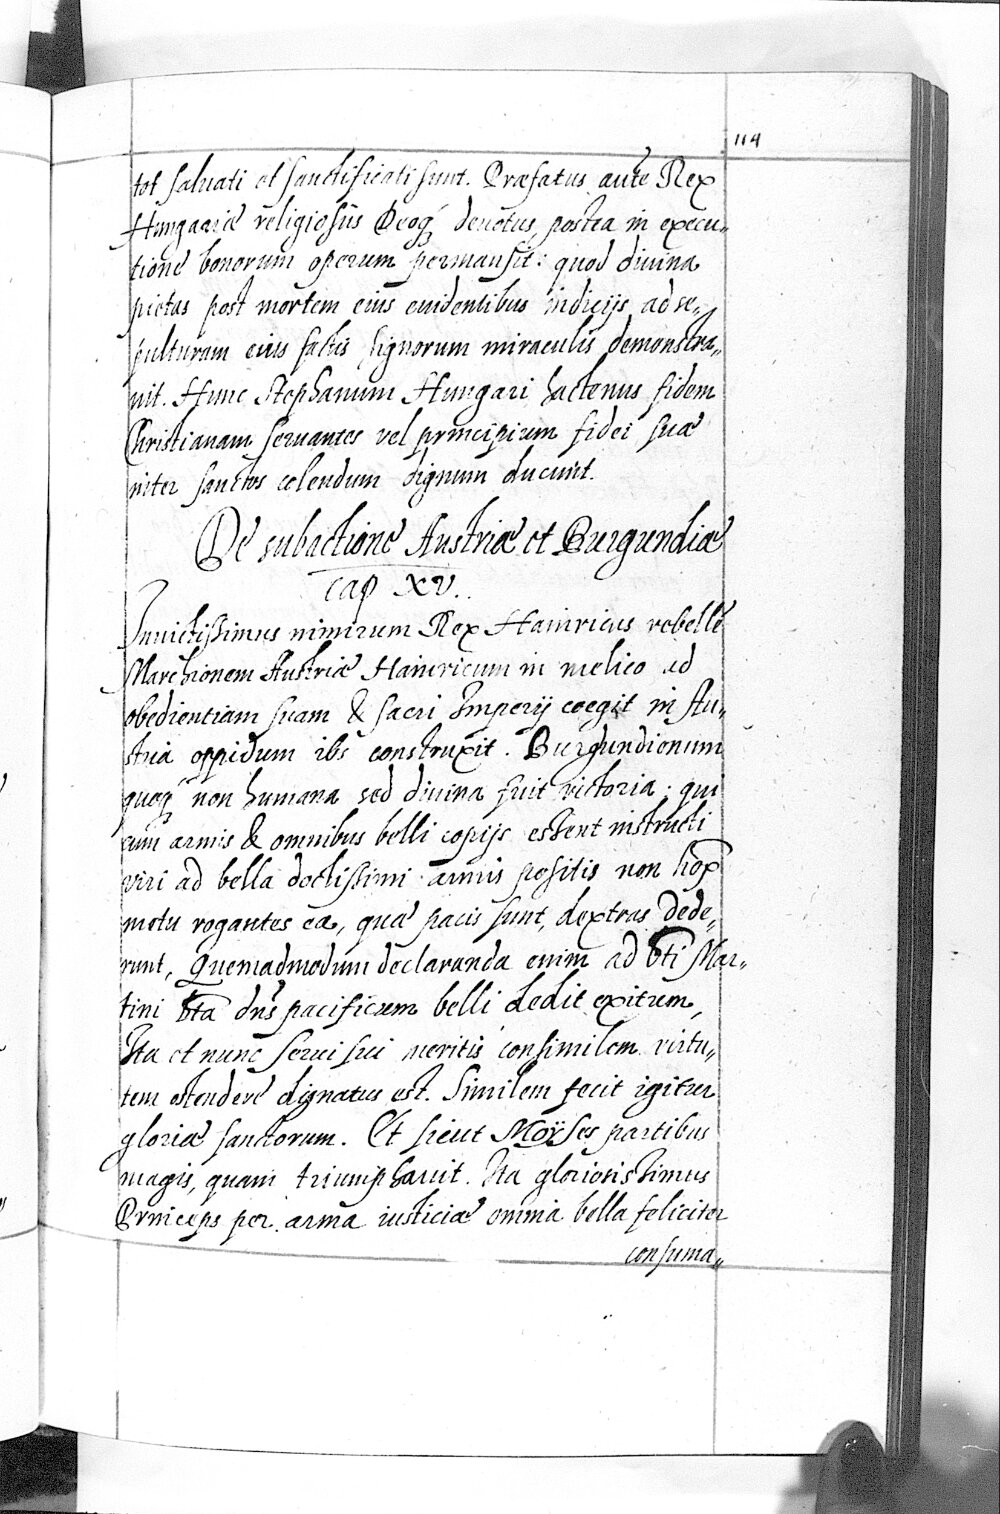 114
tot saluati et sanctificati sunt. Præfatus aute Rex
Hungariæ religiosus Deoq́ deuotus, postea in execu„
tione bonorum operum permansit: quod diuina
pietas post mortem eius euidentibus indicijs ad se„
pulturam eius factis signorum miraculis demonstra„
uit. Hunc Stephanum Hungari hactenus fidem
Christianam seruantes vel principium fidei suæ
inter sanctos colendum dignum ducunt.
De subactione Austriæ et Burgundiæ
cap XV.
Inuictissimus nimirum Rex Hainricus rebellē
Marchionem Austriæ Hainricum in melico ad
obedientiam suam & sacri Imperij coegit in Au„
stria oppidum ibs construxit. Burgundionum
quoq́ non humana sed diuina fuit victoria: qui
cum armis & omnibus belli copijs essent instructi
viri ad bella doctissimi armis positis non
motu rogantes ea, quæ pacis sunt, dextras dede„
runt, Quemadmodum declaranda enim ad bti Mar„
tini bta dns pacificum belli dedit exitum,
Ita et nunc serui sui meritis consimilem virtu„
tem ostendere dignatus est. Similem fecit igitur
gloriæ sanctorum. Et sicut Moÿses partibus
magis, quam triumphauit. Ita gloriosissimus
Princeps per arma iusticiæ omnia bella feliciter
consuma„